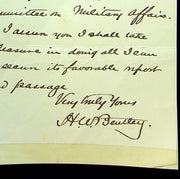 mmittee on Military Affairs.
I assure you I shall take
leasure in doing all I can
secure its favorable report
d passage
Very truly Yours
H. W. Bentley.